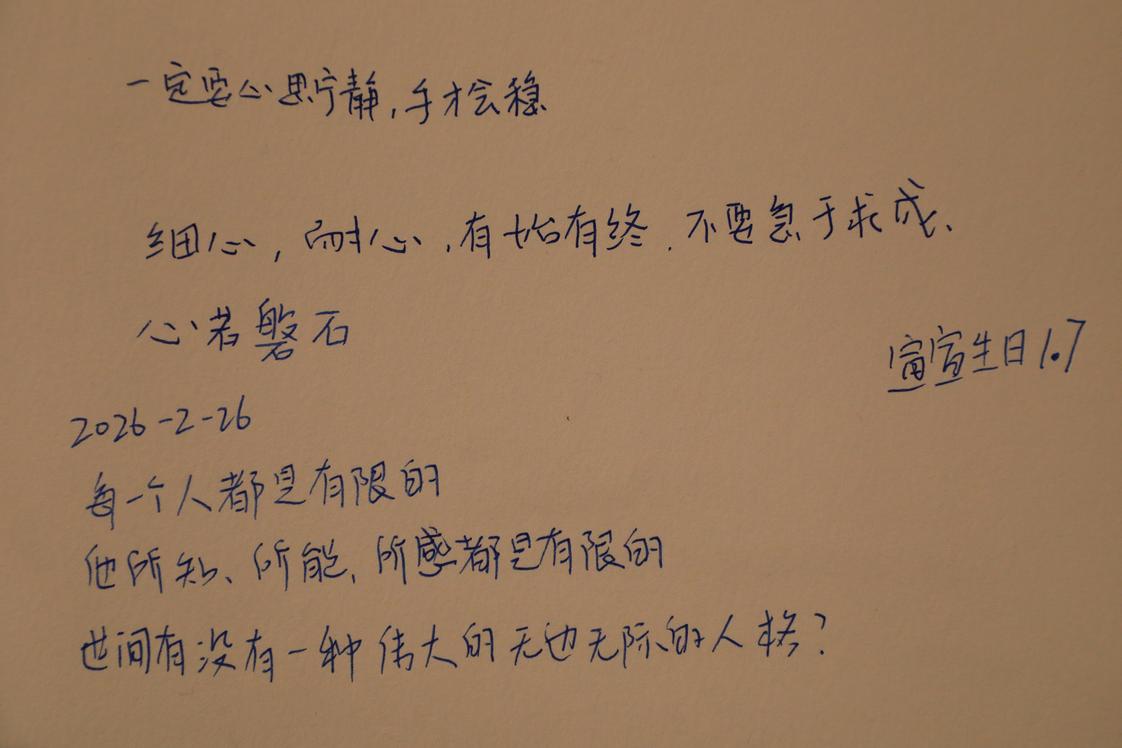 一定要心思宁静,手才会稳
细心,耐心,有始有终.不要急于求成、
心若磐石
宣宣生日1.7
2026-2-26
每一个人都是有限的
他所知、所能、所感都是有限的
世间有没有一种伟大的无边无际的人格?